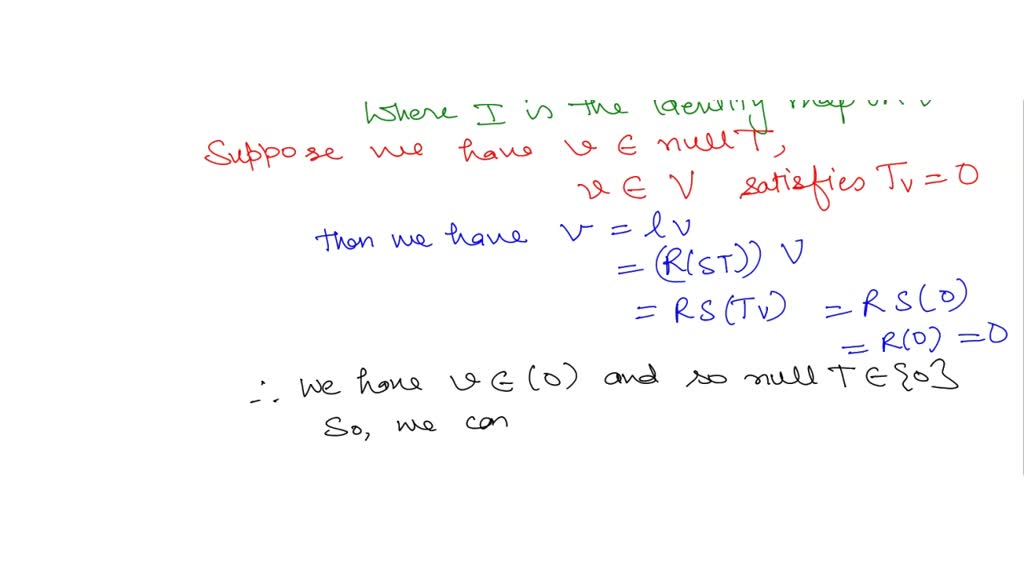 Where I is the identity map on V
Suppose we have v ∈ null T,
v ∈ V satisfies Tv = 0
then we have v = lv
= (R(ST)) V
= RS(Tv) = RS(0)
= R(0) = 0
∴ we have v ∈ (0) and so null T ∈ {0}
So, we can